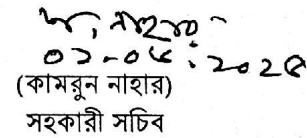 ০১-০৬.২০২৫
(কামরুন নাহার)
সহকারী সচিব